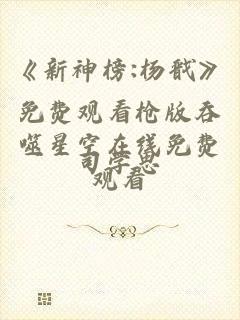 《新神榜:杨戬》
免费观看枪版吞
噬星空在线免费
观看
司学思